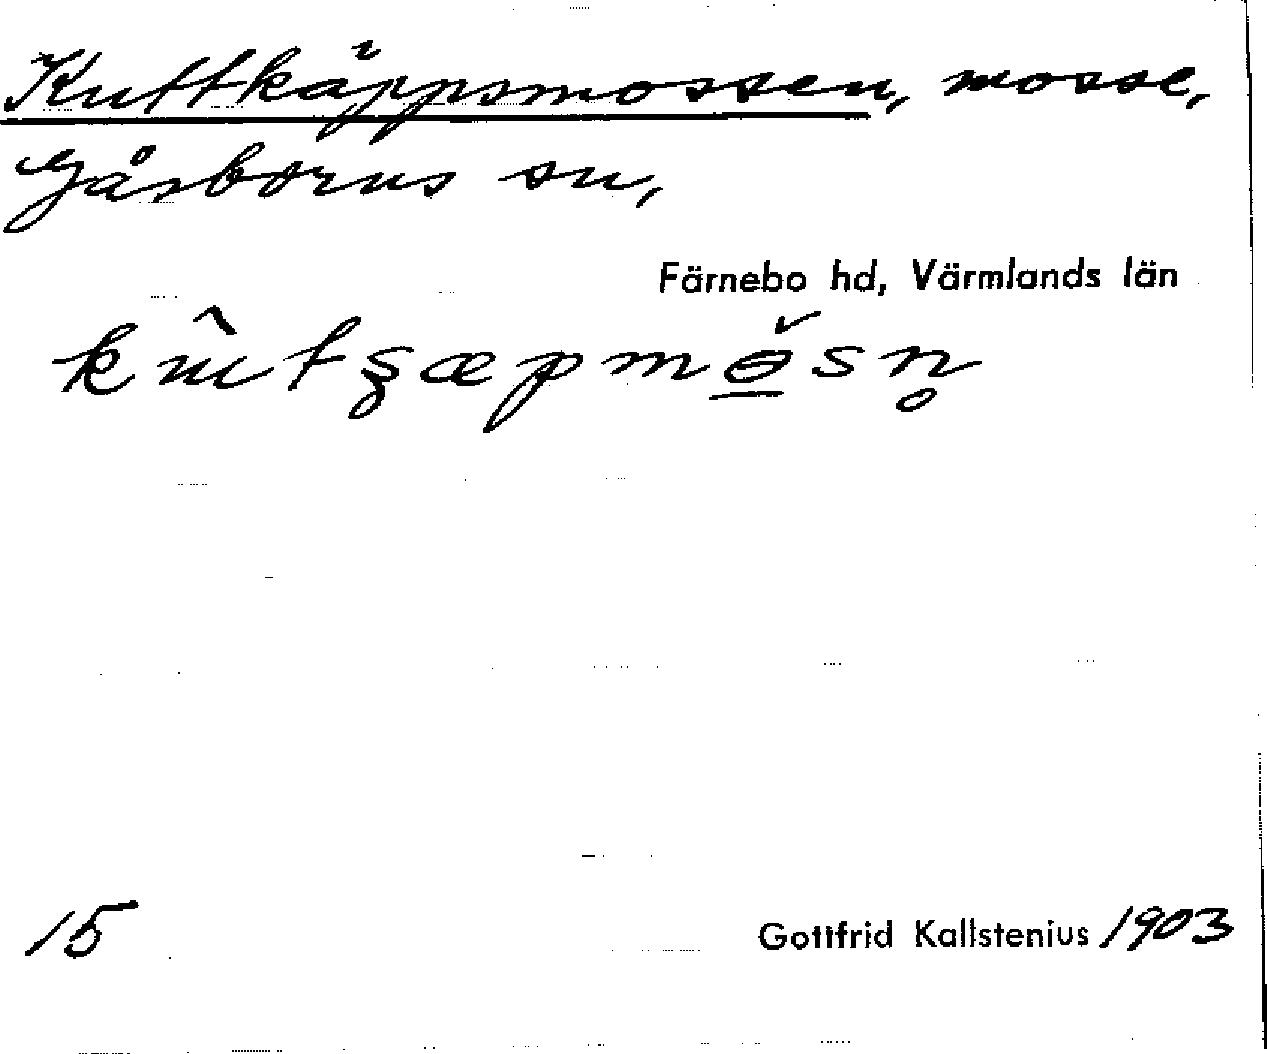 Kuttkäppsmossen, mosse,
Gåsborns sn,
Färnebo hd, Värmlands län
15
Gottfrid Kallstenius 1903